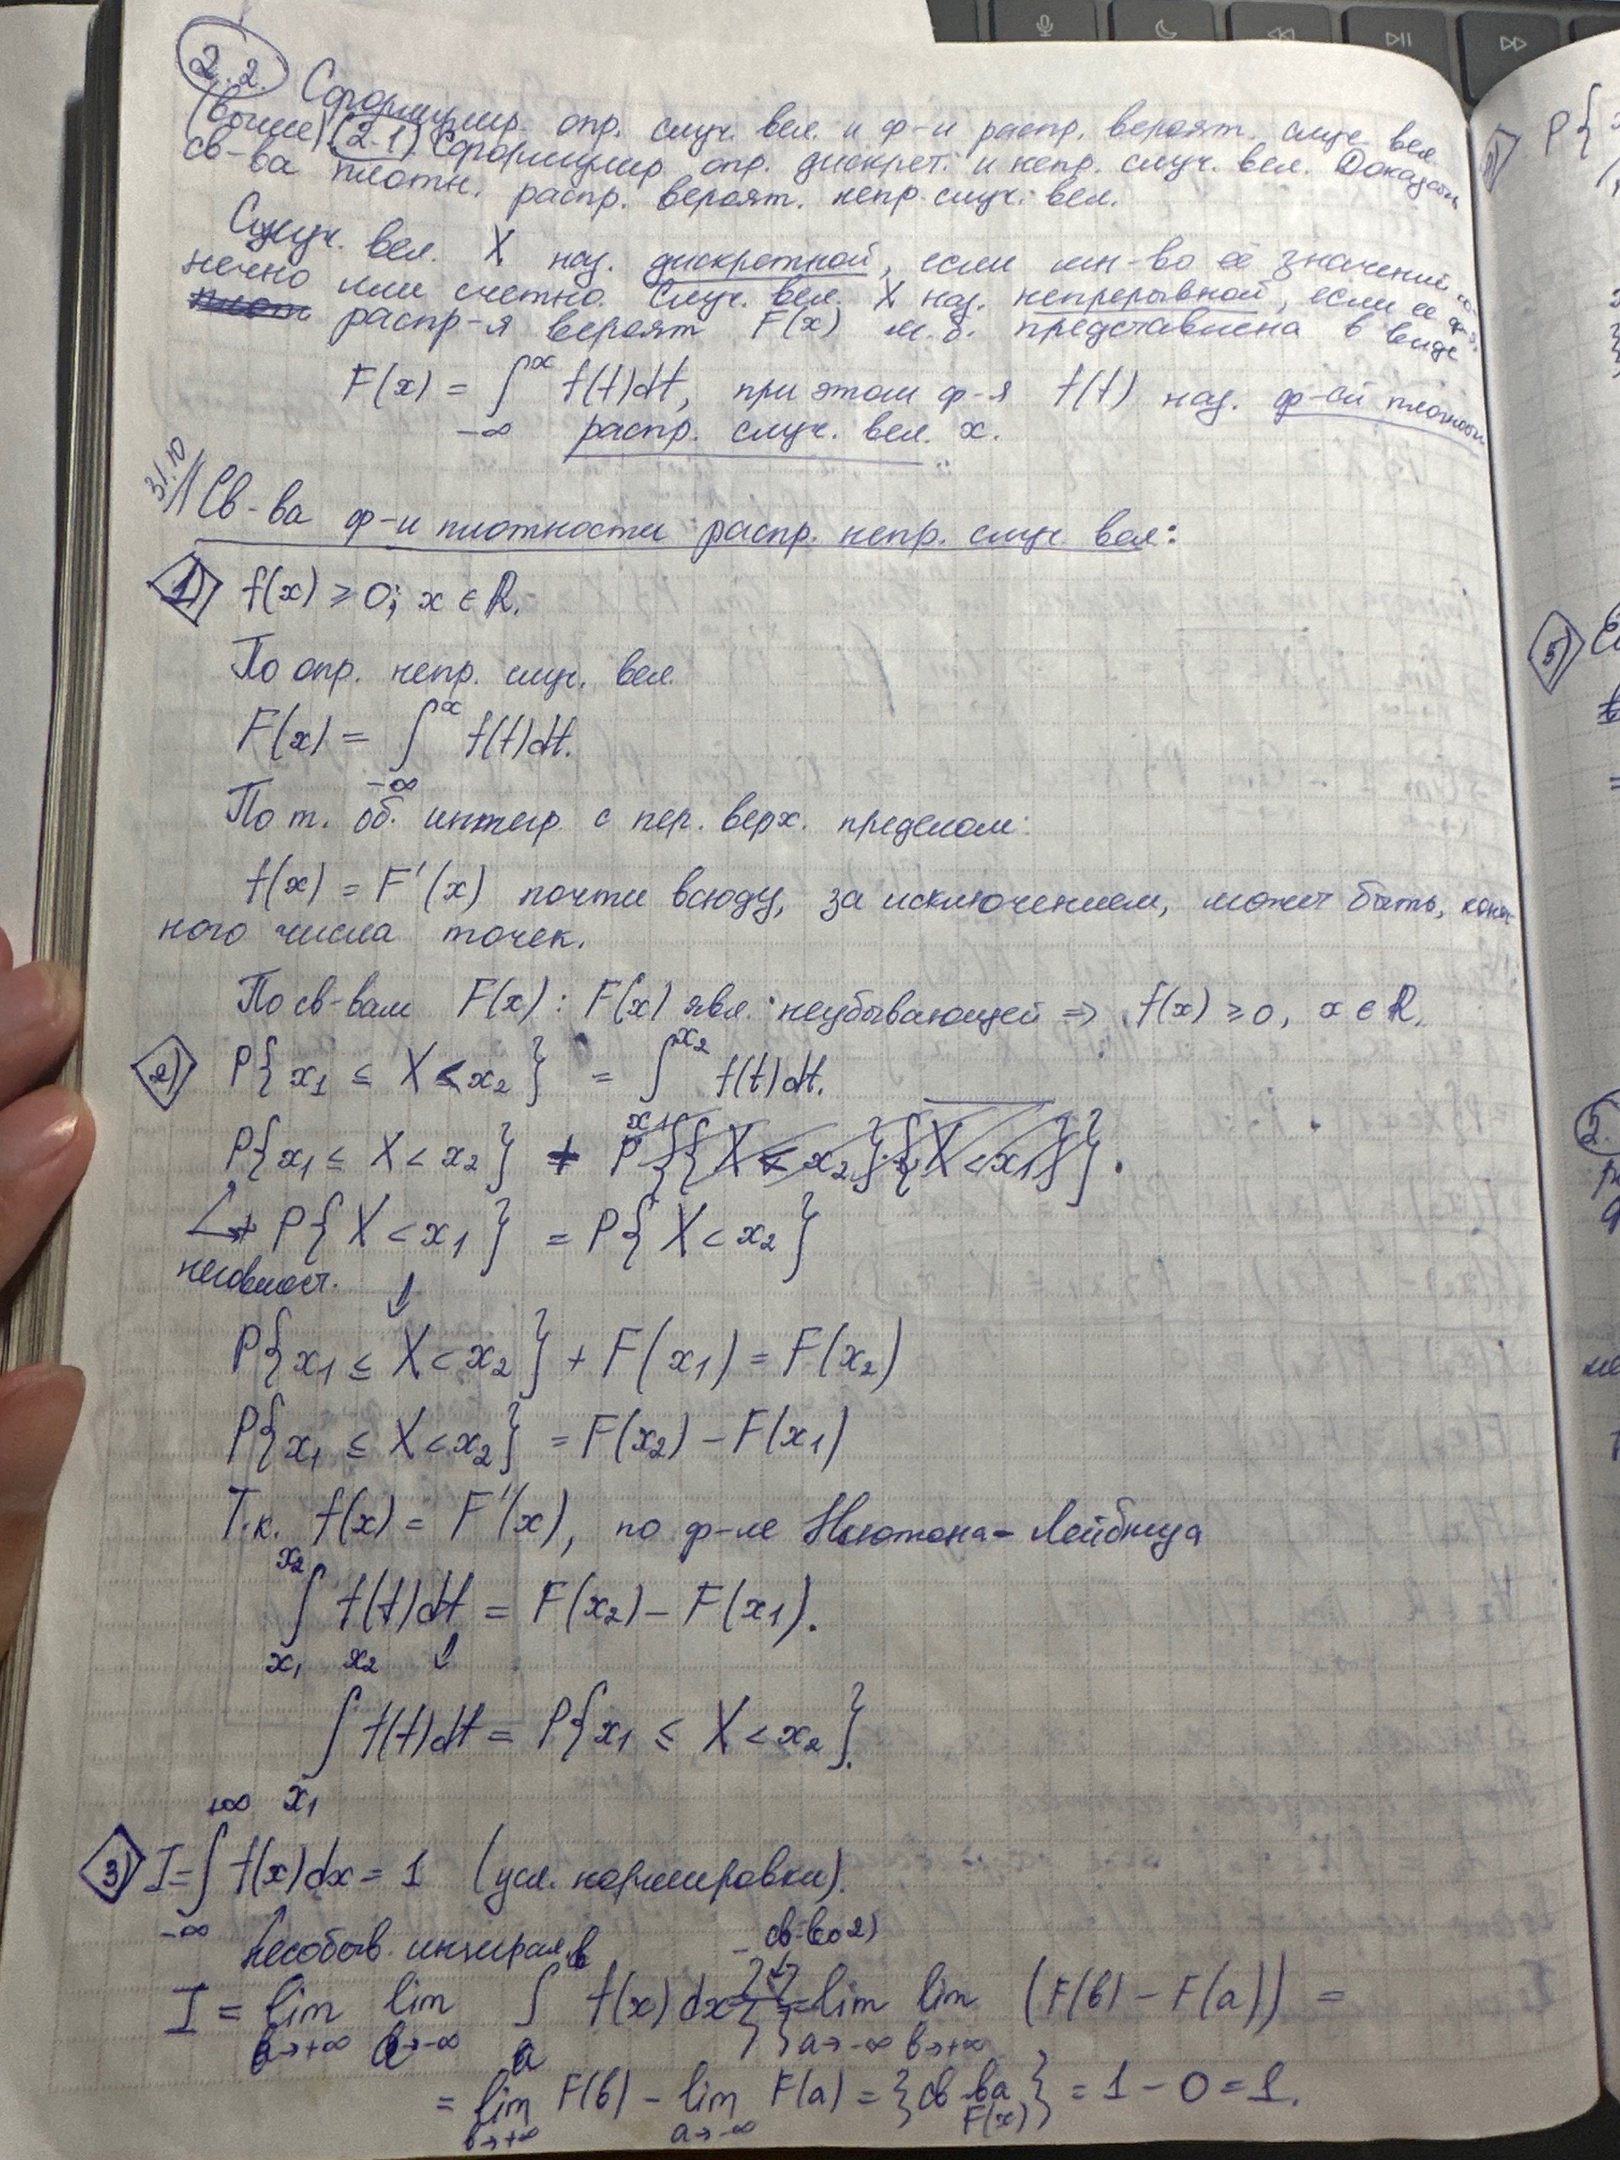 2.2. Сформулир. опр. случ. вел. и ф-и распр. вероят. случ. вел.
(выше) (2.1) Сформулир. опр. дискрет. и непр. случ. вел. Доказать
св-ва плотн. распр. вероят. непр случ. вел.
Случ. вел. X наз. дискретной, если мн-во её значений ко-
нечно или счетно. Случ. вел. X наз. непрерывной, если её ф-я
распр-я вероят F(x) м.б. представлена в виде
F(x) = ∫_{-∞}^{x} f(t)dt, при этом ф-я f(t) наз. ф-ей плотности
распр. случ. вел. x.
31.10 // Св-ва ф-и плотности распр. непр. случ. вел:
1) f(x) ≥ 0; x ∈ R.
По опр. непр. случ. вел.
F(x) = ∫_{-∞}^{x} f(t)dt.
По т. об. интегр. с пер. верх. пределом:
f(x) = F'(x) почти всюду, за исключением, может быть, конеч-
ного числа точек.
По св-вам F(x): F(x) явл. неубывающей ⇒ f(x) ≥ 0, x ∈ R.
2) P{x₁ ≤ X < x₂} = ∫_{x₁}^{x₂} f(t)dt.
P{x₁ ≤ X < x₂} +
+ P{X < x₁} = P{X < x₂}
несовмест. ↓
P{x₁ ≤ X < x₂} + F(x₁) = F(x₂)
P{x₁ ≤ X < x₂} = F(x₂) - F(x₁)
Т.к. f(x) = F'(x), по ф-ле Ньютона-Лейбница
∫_{x₁}^{x₂} f(t)dt = F(x₂) - F(x₁).
↓
∫_{x₁}^{x₂} f(t)dt = P{x₁ ≤ X < x₂}.
3) I = ∫_{-∞}^{+∞} f(x)dx = 1 (усл. нормировки).
Несобств. интеграл
св-во 2)
I = lim_{b→+∞} lim_{a→-∞} ∫_{a}^{b} f(x)dx = lim_{a→-∞} lim_{b→+∞} (F(b) - F(a)) =
= lim_{b→+∞} F(b) - lim_{a→-∞} F(a) = {св-ва F(x)} = 1 - 0 = 1.
P{
5)
2.